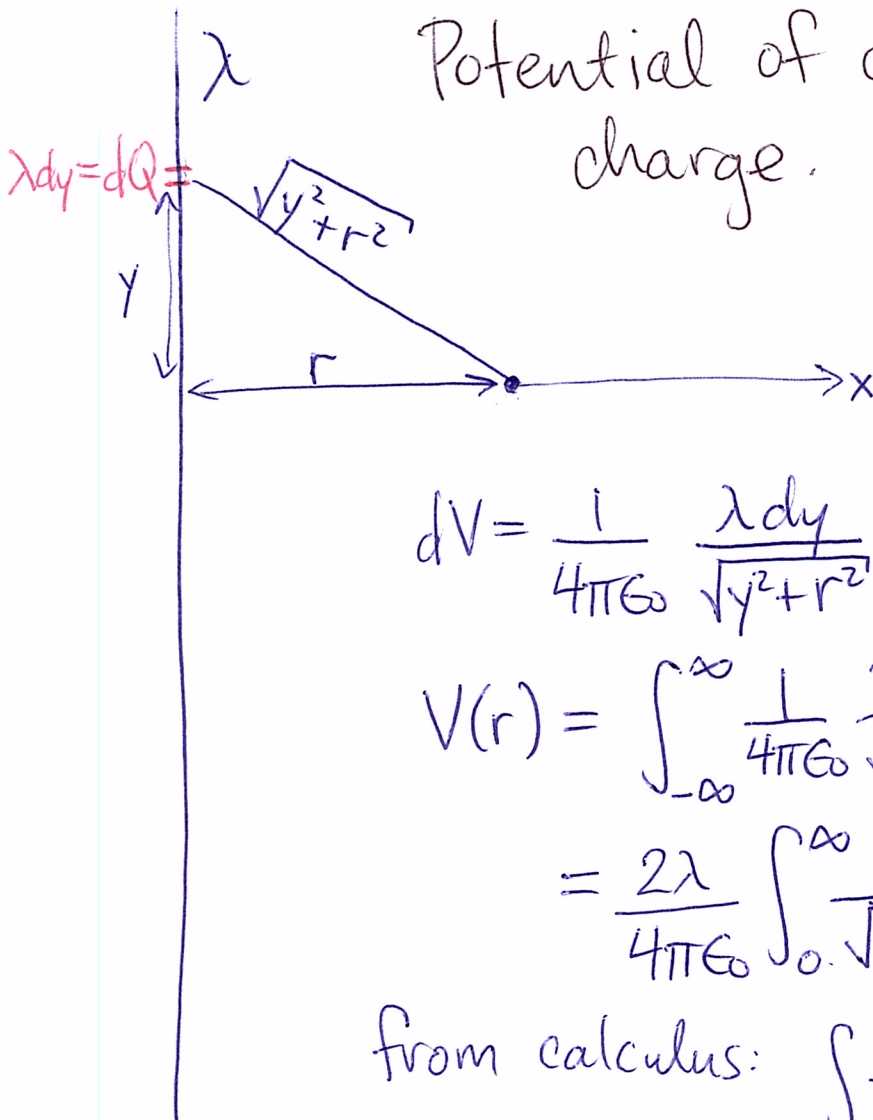 λ
Potential of
charge.
λdy=dQ=
√y²+r²
y
r
x
dV= 1/4πϵ₀ λdy/√y²+r²
V(r) = ∫_{-∞}^{∞} 1/4πϵ₀
= 2λ/4πϵ₀ ∫_{0}^{∞} √
from calculus: ∫